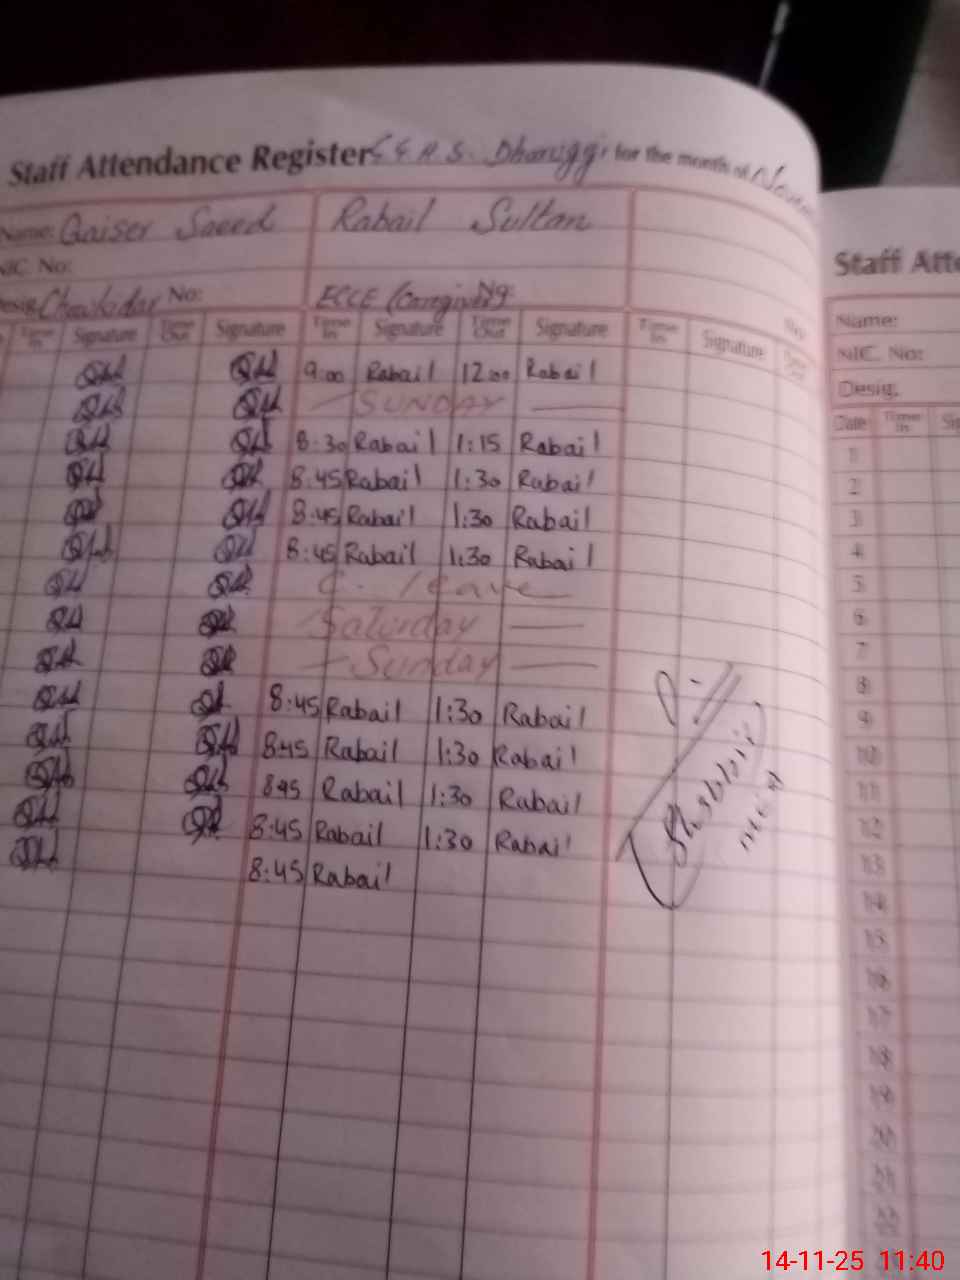 Staff Attendance Register G.G.P.S. Dhariggi for the month of Novem
Name: Qaiser Saeed Rabail Sultan
NIC. No:
Desig: Chowkidar No: ECCE (Caregiver) No:
Time In Signature Time Out Signature Time In Signature Time Out Signature Time In Signature
9:00 Rabail 12:00 Rabail
SUNDAY
8:30 Rabail 1:15 Rabail
8:45 Rabail 1:30 Rabail
8:45 Rabail 1:30 Rabail
8:45 Rabail 1:30 Rabail
C. leave
Saturday
Sunday
8:45 Rabail 1:30 Rabail
8:45 Rabail 1:30 Rabail
8:45 Rabail 1:30 Rabail
8:45 Rabail 1:30 Rabail
8:45 Rabail
Staff Atte
Name:
NIC. No:
Desig.
Date Time In Sig
1
2
3
4
5
6
7
8
9
10
11
12
13
14
15
16
17
18
19
20
21
22
14-11-25 11:40